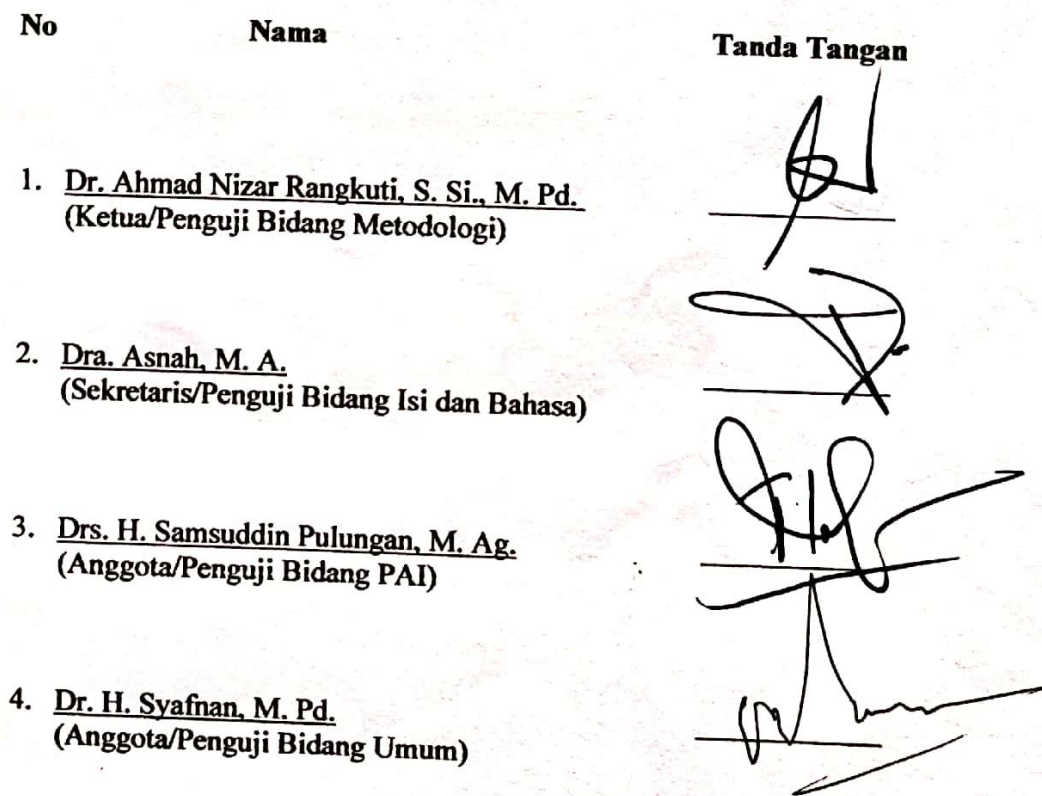 No Nama Tanda Tangan
1. Dr. Ahmad Nizar Rangkuti, S. Si., M. Pd.
(Ketua/Penguji Bidang Metodologi)
2. Dra. Asnah, M. A.
(Sekretaris/Penguji Bidang Isi dan Bahasa)
3. Drs. H. Samsuddin Pulungan, M. Ag.
(Anggota/Penguji Bidang PAI)
4. Dr. H. Syafnan, M. Pd.
(Anggota/Penguji Bidang Umum)